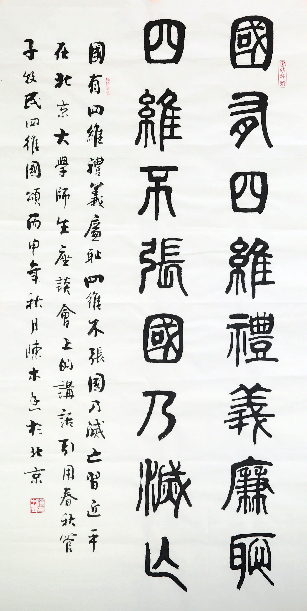 國有四維禮義廉恥
四維不張國乃滅亡
國有四維禮義廉恥四維不張國乃滅亡習近平
在北京大學師生座談會上的講話引用春秋管
子牧民四維國頌丙申年秋月陳木 於北京